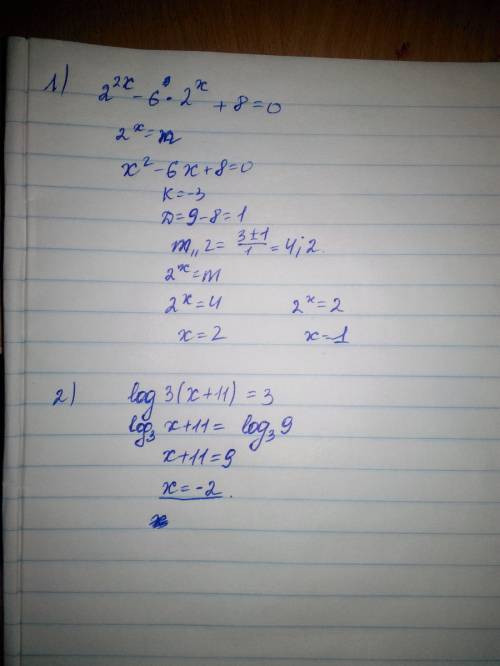 1) 2^{2x} - 6 · 2^x + 8 = 0
2^x = m
x^2 - 6x + 8 = 0
K = -3
D = 9 - 8 = 1
m_{1,2} = \frac{3 ± 1}{1} = 4; 2.
2^x = m
2^x = 4 2^x = 2
x = 2 x = 1
2) log 3(x + 11) = 3
log_3 x + 11 = log_3 9
x + 11 = 9
x = -2.